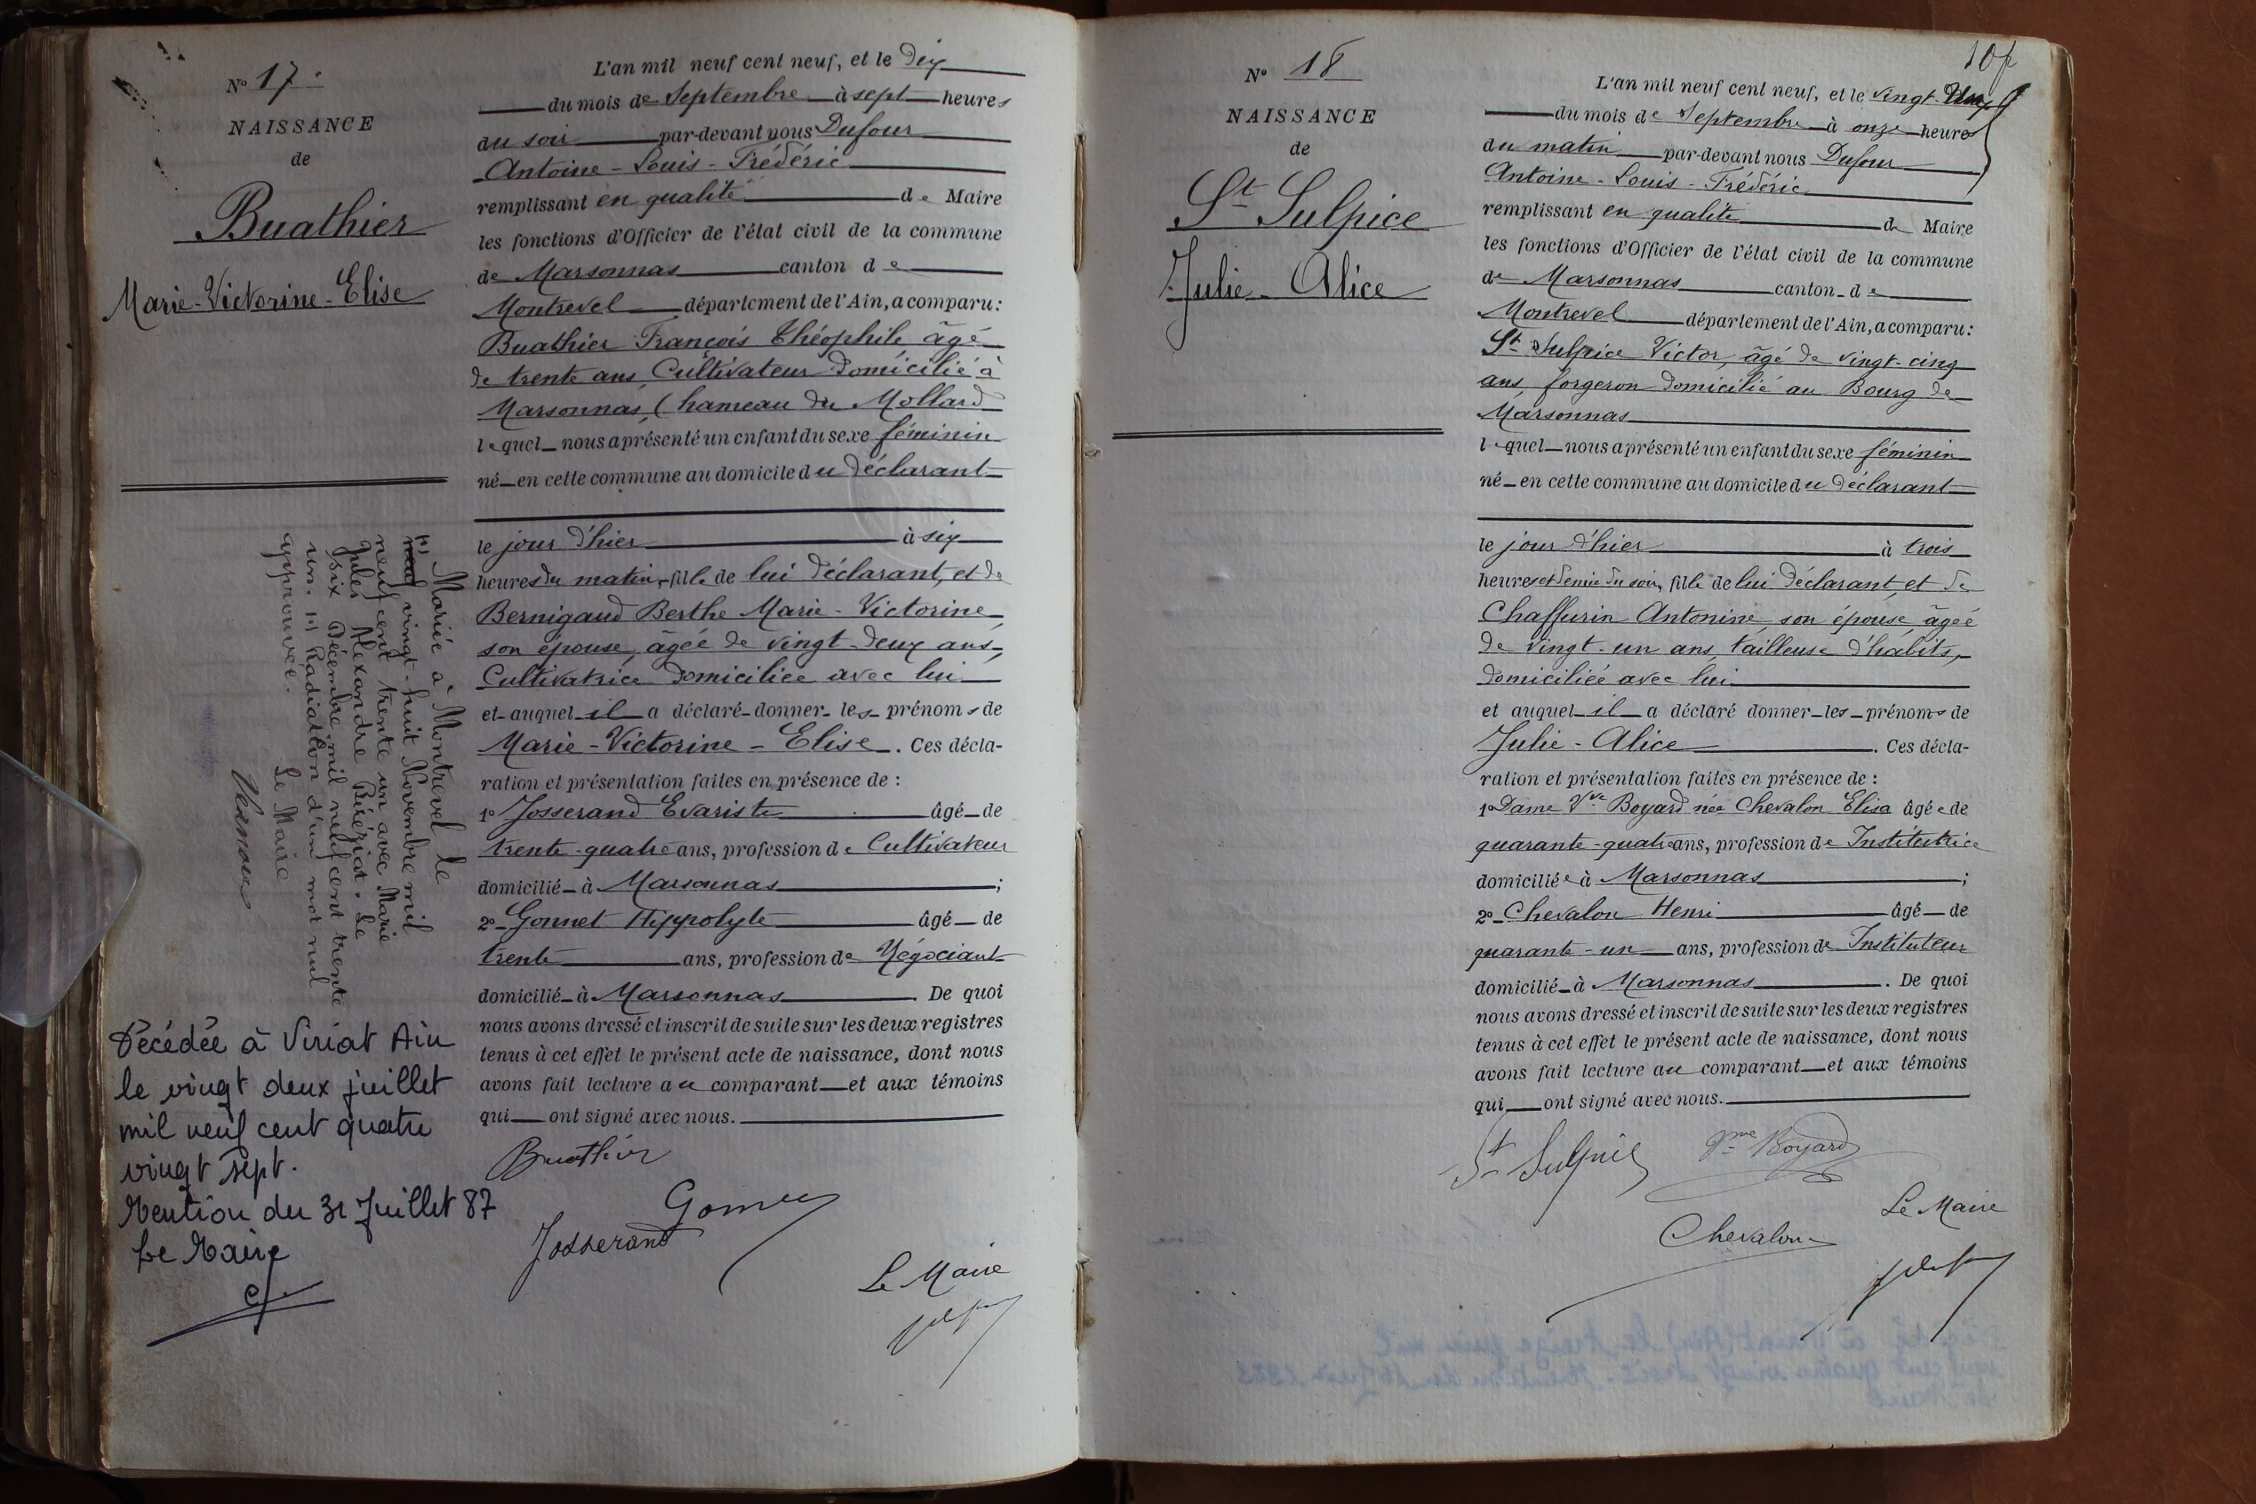 N° 17.
NAISSANCE
de
Buathier
Marie-Victorine-Elise
(1) Mariée à Montrevel le
vingt-huit Novembre mil
neuf cent trente un avec Marie
Jules Alexandre Bérèziat. Le
six Décembre mil neuf cent trente
un. (1) Radiation d'un mot nul
approuvée.
Le Maire
Décédée à Viriat Ain
le vingt deux juillet
mil neuf cent quatre
vingt sept.
Mention du 31 Juillet 87
Le Maire
L'an mil neuf cent neuf, et le dix
du mois de Septembre à sept heures
du soir par-devant nous Dufour
Antoine-Louis-Frédéric
remplissant en qualité de Maire
les fonctions d'Officier de l'état civil de la commune
de Marsonnas canton de
Montrevel département de l'Ain, a comparu:
Buathier François Théophile âgé
de trente ans, Cultivateur domicilié à
Marsonnas, (hameau du Mollard
lequel nous a présenté un enfant du sexe féminin
né en cette commune au domicile du déclarant
le jour d'hier à six
heures du matin, fille de lui déclarant, et de
Bernigaud Berthe Marie-Victorine
son épouse, âgée de vingt-deux ans,
Cultivatrice domiciliée avec lui
et auquel il a déclaré donner les prénoms de
Marie-Victorine-Elise. Ces décla-
ration et présentation faites en présence de :
1° Josserand Evariste âgé de
trente-quatre ans, profession de Cultivateur
domicilié à Marsonnas ;
2° Gonnet Hippolyte âgé de
trente ans, profession de Négociant
domicilié à Marsonnas. De quoi
nous avons dressé et inscrit de suite sur les deux registres
tenus à cet effet le présent acte de naissance, dont nous
avons fait lecture au comparant et aux témoins
qui ont signé avec nous.
Buathier
Gonnet
Josserand
Le Maire
N° 18
NAISSANCE
de
St Sulpice
Julie-Alice
L'an mil neuf cent neuf, et le vingt-un
du mois de Septembre à onze heures
du matin par-devant nous Dufour
Antoine-Louis-Frédéric
remplissant en qualité de Maire
les fonctions d'Officier de l'état civil de la commune
de Marsonnas canton de
Montrevel département de l'Ain, a comparu:
St Sulpice Victor, âgé de vingt-cinq
ans, forgeron domicilié au Bourg de
Marsonnas
lequel nous a présenté un enfant du sexe féminin
né en cette commune au domicile du déclarant
le jour d'hier à trois
heures et demie du soir, fille de lui déclarant, et de
Chaffurin Antonine, son épouse, âgée
de vingt-un ans, tailleuse d'habits,
domiciliée avec lui
et auquel il a déclaré donner les prénoms de
Julie-Alice. Ces décla-
ration et présentation faites en présence de :
1° Dame Vve Boyard née Chevalon Elisa âgée de
quarante-quatre ans, profession de Institutrice
domiciliée à Marsonnas ;
2° Chevalon Henri âgé de
quarante-un ans, profession de Instituteur
domicilié à Marsonnas. De quoi
nous avons dressé et inscrit de suite sur les deux registres
tenus à cet effet le présent acte de naissance, dont nous
avons fait lecture au comparant et aux témoins
qui ont signé avec nous.
St Sulpice
Vve Boyard
Chevalon
Le Maire